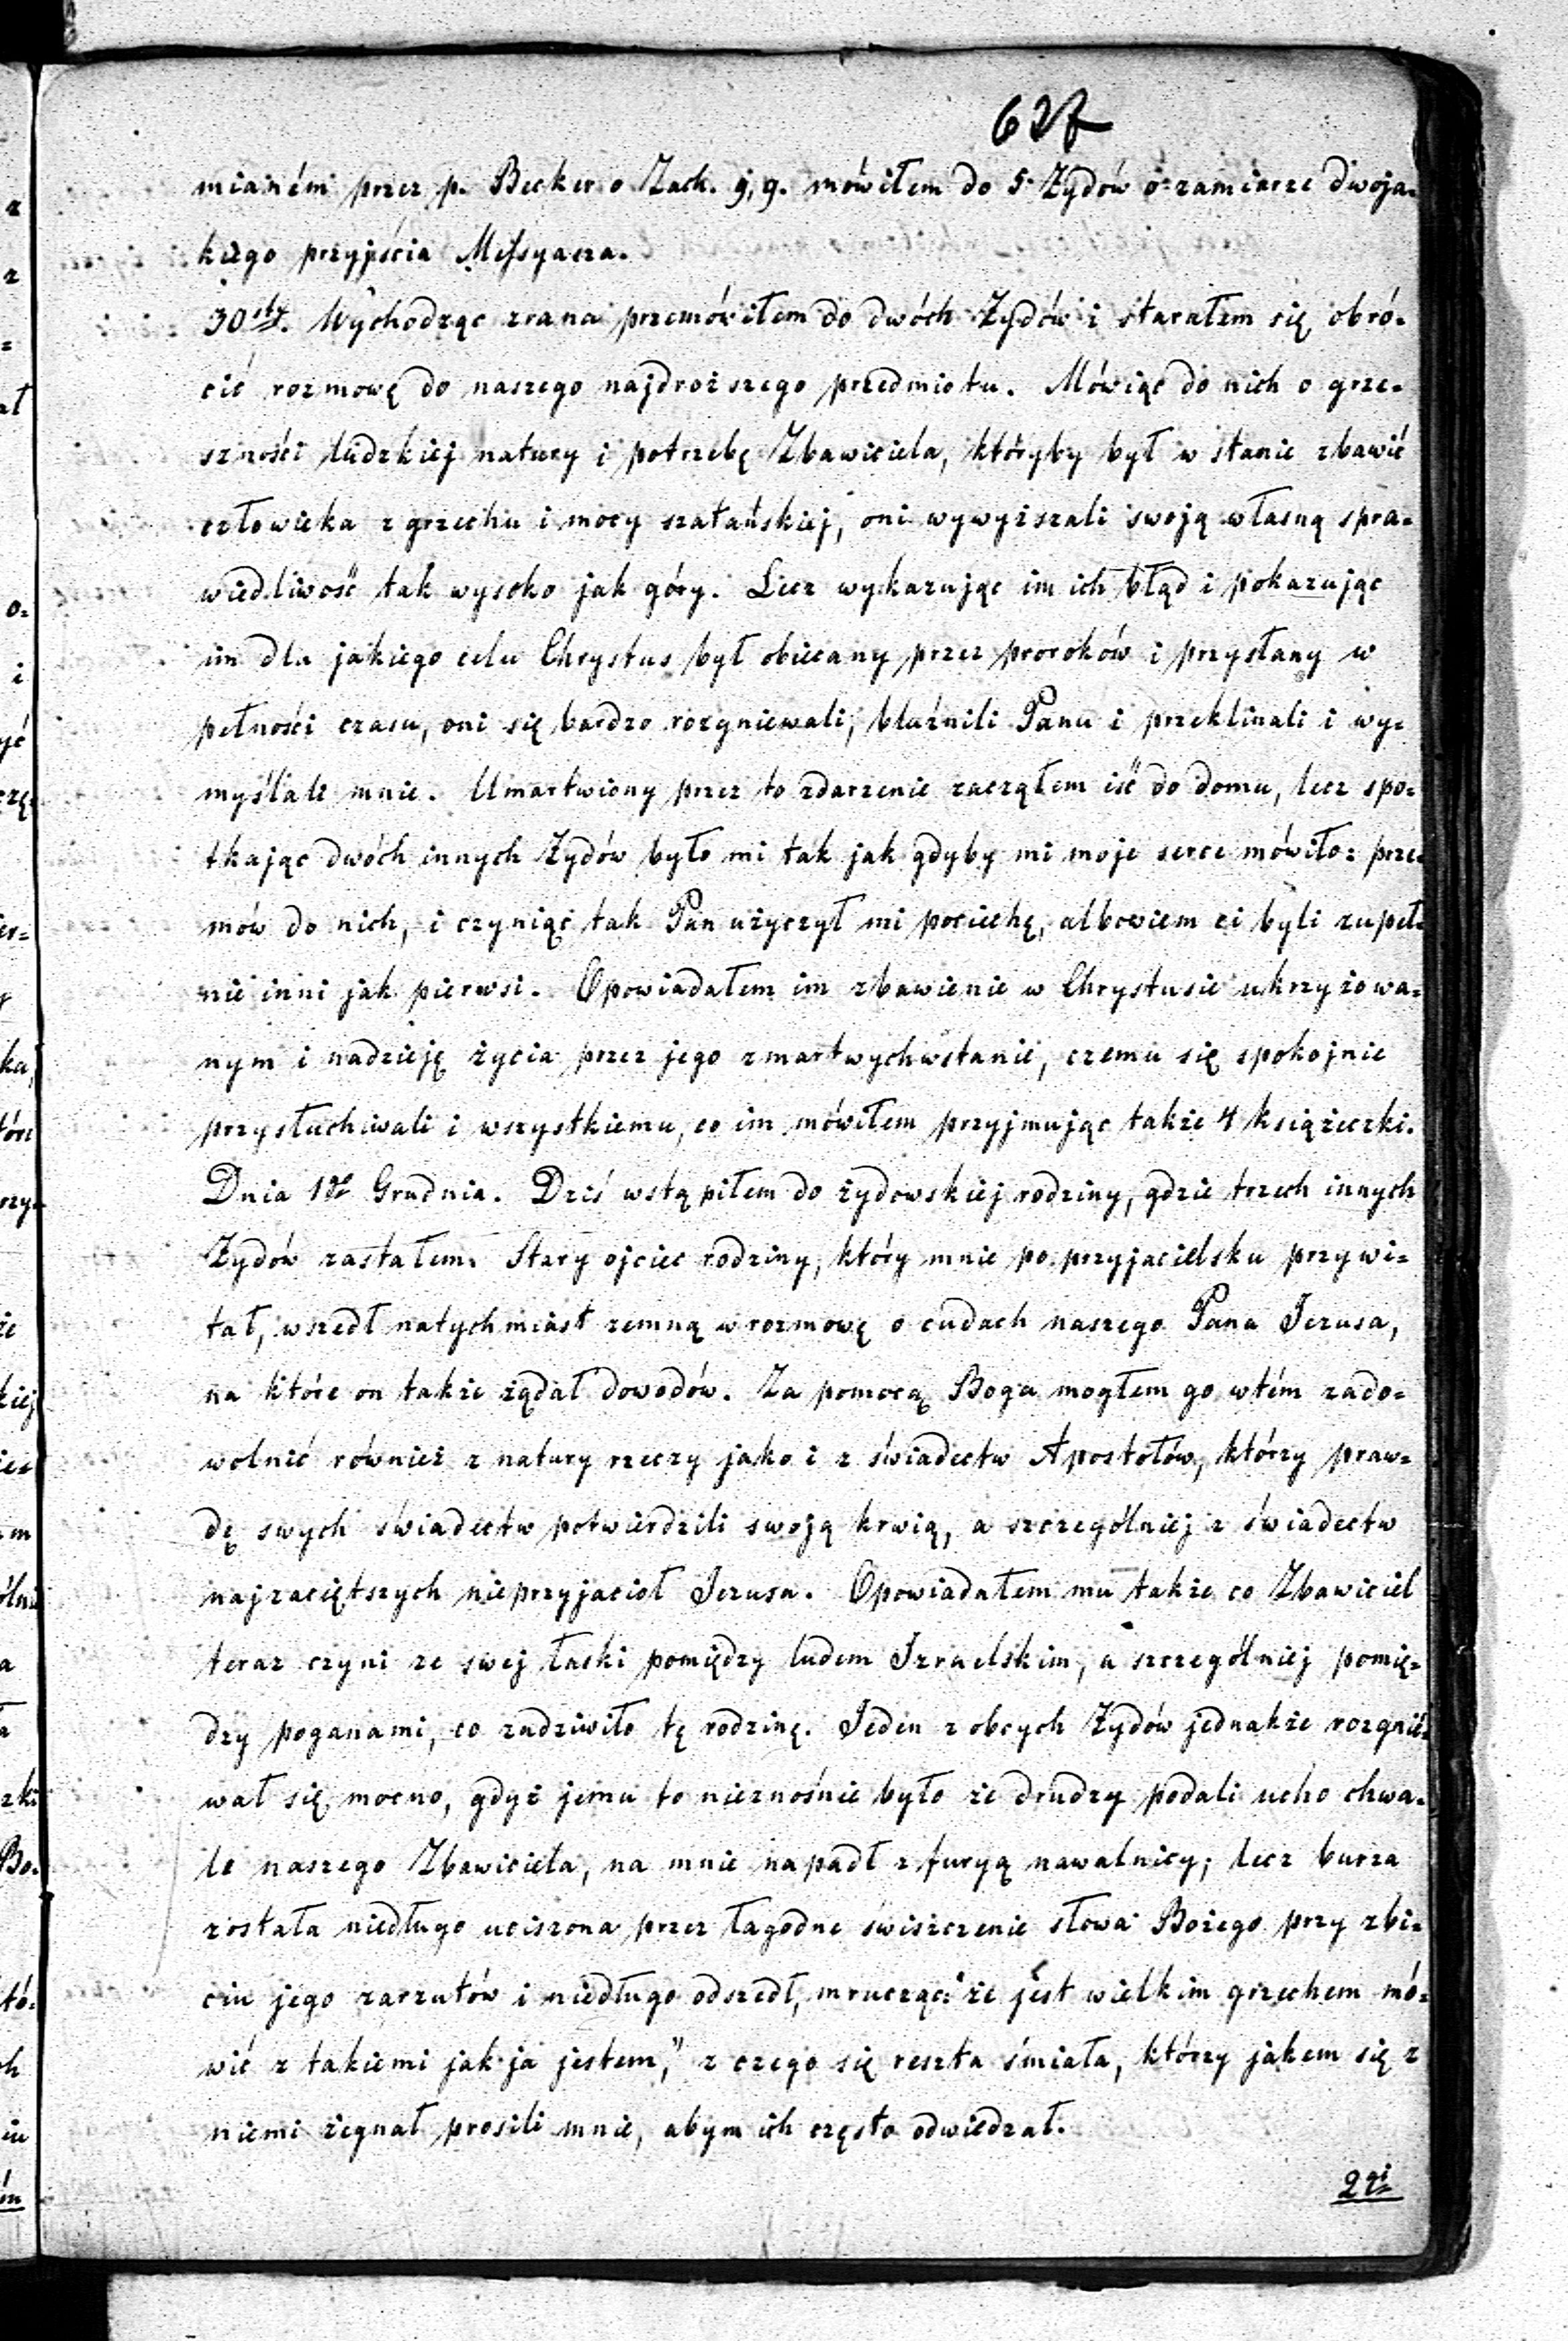 627
mianém przez p. Becker o Zach. 9, 9. mówiłem do 5 Żydów o zamiarze dwoja-
kiego przyjścia Messyasza.
30sty. Wychodząc zrana przemówiłem do dwóch Żydów i starałem się obró-
cić rozmowę do naszego najdroższego przedmiotu. Mówiąc do nich o grze-
szności ludzkiej natury i potrzebę Zbawiciela, któryby był w stanie zbawić
człowieka z grzechu i mocy szatańskiej, oni wywyższali swoją własną spra-
wiedliwość tak wysoko jak góry. Lecz wykazując im ich błąd i pokazując
im dla jakiego celu Chrystus był obiecany przez proroków i przysłany w
pełności czasu, oni się bardzo rozgniewali, bluźnili Panu i przeklinali i wy-
myślali mnie. Umartwiony przez to zdarzenie zacząłem iść do domu, lecz spo-
tkając dwóch innych Żydów było mi tak jak gdyby mi moje serce mówiło: prze-
mów do nich, i czyniąc tak Pan użyczył mi pociechę, albowiem ci byli zupeł-
nie inni jak pierwsi. Opowiadałem im zbawienie w Chrystusie ukrzyżowa-
nym i nadzieję życia przez jego zmartwychwstanie, czemu się spokojnie
przysłuchiwali i wszystkiemu, co im mówiłem przyjmując także 4 książeczki.
Dnia 1go Grudnia. Dziś wstąpiłem do żydowskiej rodziny, gdzie trzech innych
Żydów zastałem. Stary ojciec rodziny, który mnie po przyjacielsku przywi-
tał, wszedł natychmiast zemną w rozmowę o cudach naszego Pana Jezusa,
na które on także żądał dowodów. Za pomocą Boga mogłem go wtém zado-
wolnić również z natury rzeczy jako i z świadectw Apostołów, którzy praw-
dę swych świadectw potwierdzili swoją krwią, a szczególniej z świadectw
najzaciętszych nieprzyjaciół Jezusa. Opowiadałem mu także co Zbawiciel
teraz czyni ze swej łaski pomiędzy ludem Izraelskim, a szczególniej pomię-
dzy poganami, co zadziwiło tę rodzinę. Jeden z obcych Żydów jednakże rozgnié-
wał się mocno, gdyż jemu to nieznośnie było że drudzy podali ucho chwa-
le naszego Zbawiciela, na mnie napadł z furyą nawalnicy; lecz burza
została niedługo uciszona przez łagodne świszczenie słowa Bożego przy zbi-
ciu jego zarzutów i niedługo odszedł, mrucząc: że jest wielkim grzechem mó-
wić z takiemi jak ja jestem," z czego się reszta śmiała, którzy jakem się z
niemi żegnał prosili mnie, abym ich często odwiedzał.
2gi